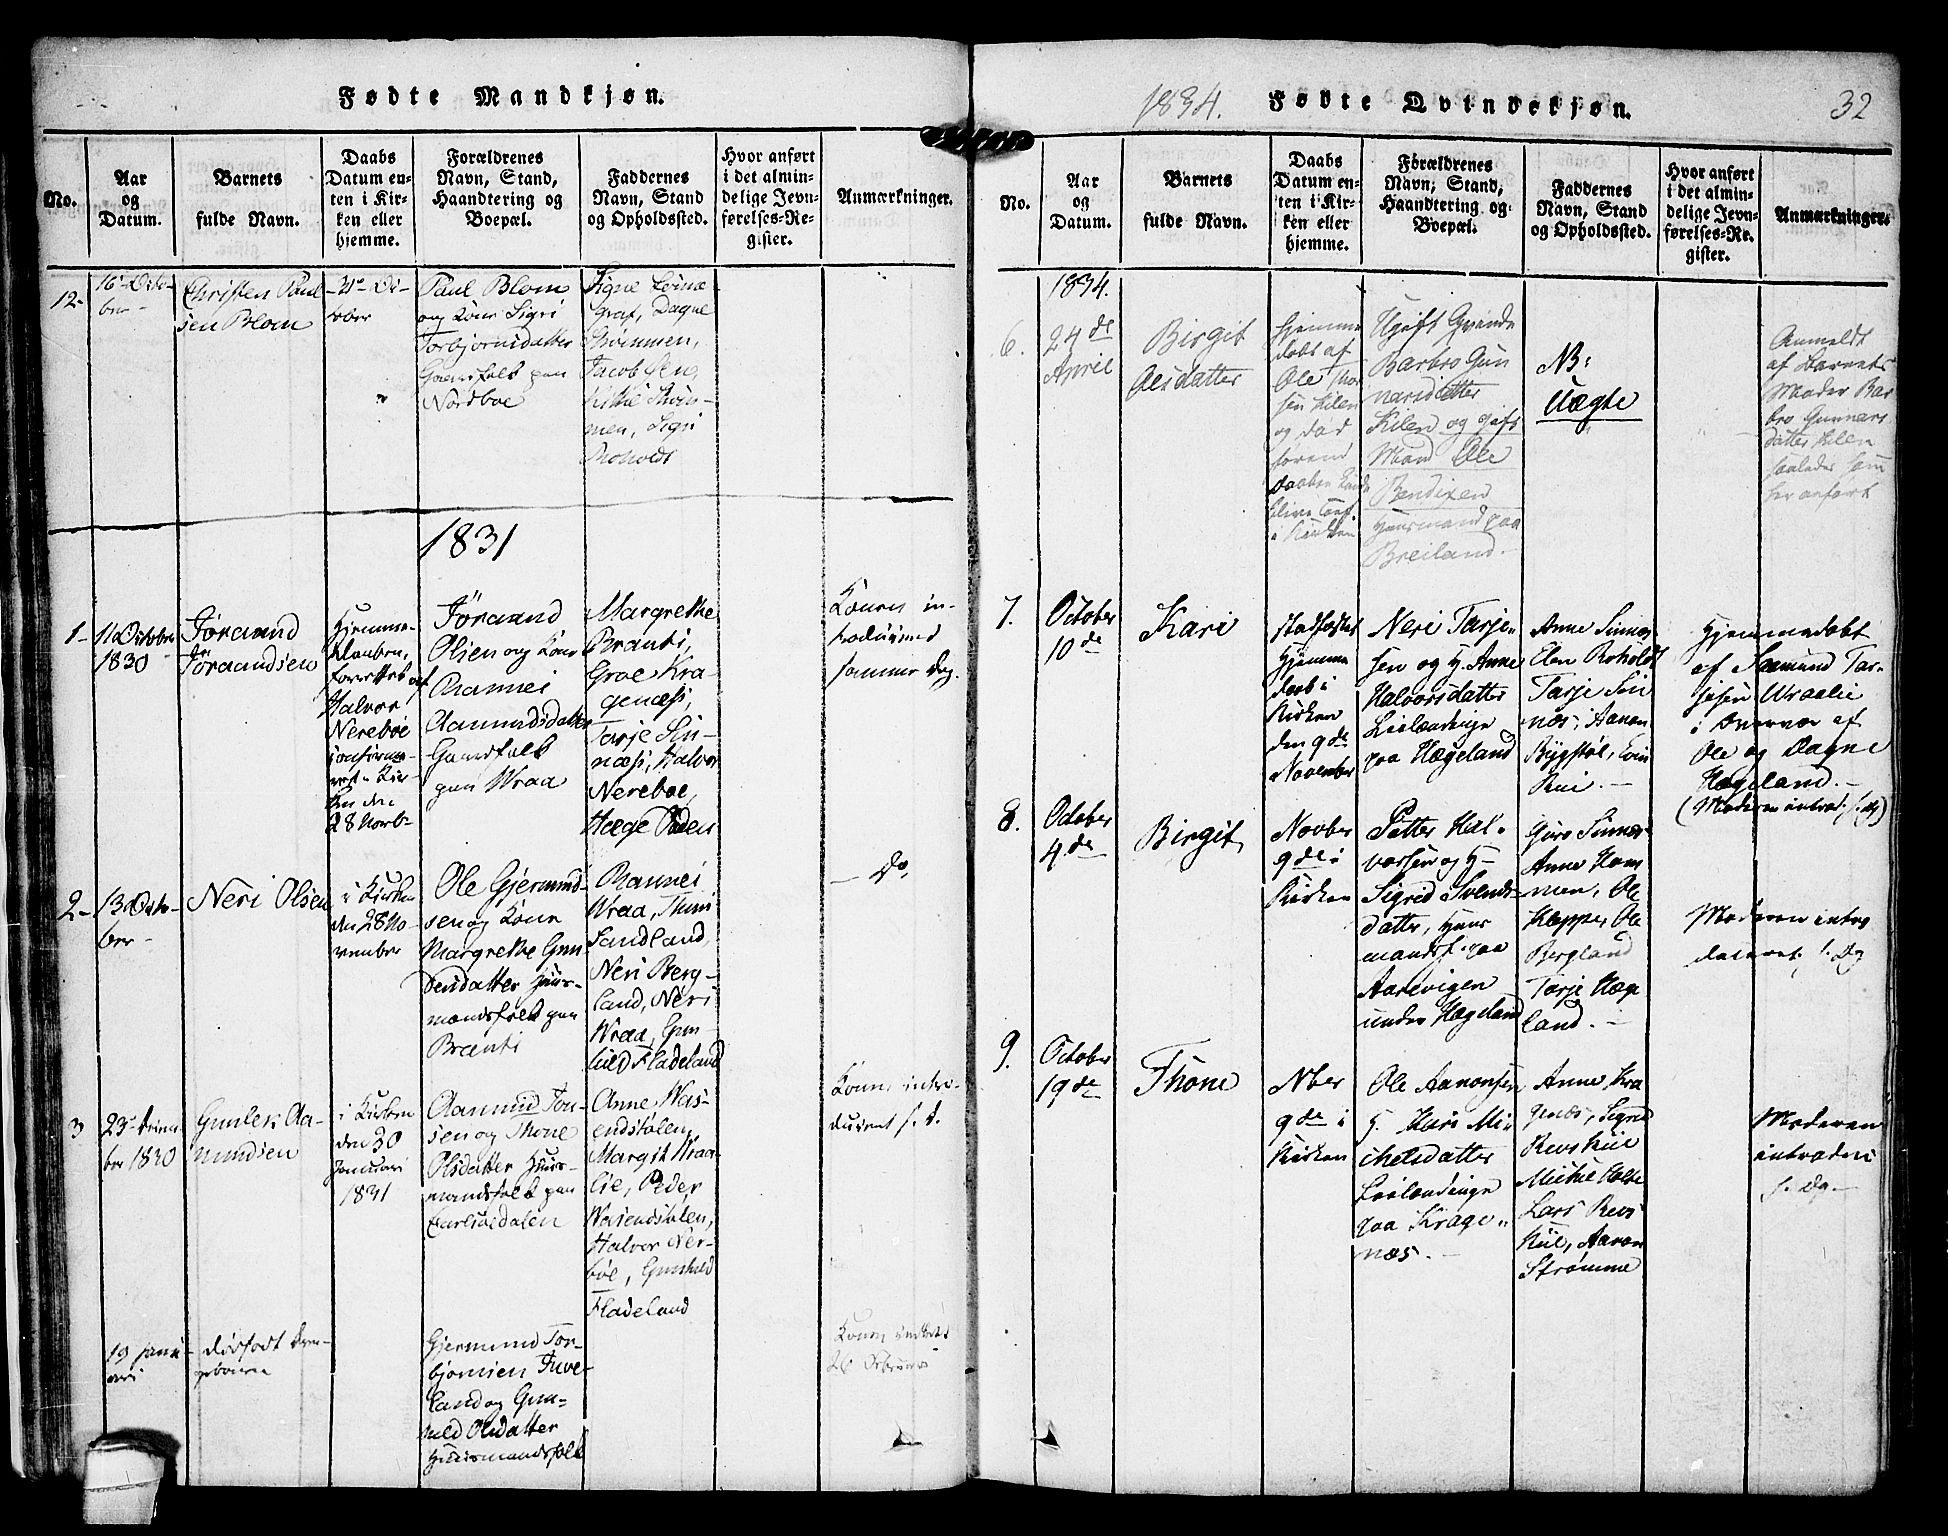 Fødte Mandkjøn.
No.
Aar
og
Datum.
Barnets
fulde Navn.
Daabs
Datum en-
ten i Kir-
ken eller
hjemme.
Forældrenes
Navn, Stand,
Haandtering og
Boepæl.
Faddernes
Navn, Stand
og Opholdssted.
Hvor anført
i det almin-
delige Jevn-
førelses-Re-
gister.
Anmærkninger.
12-
16de Octo-
ber
Christen Paul
sen Blom
Paul Blom
og Kone Sigri
Torbjørnsdatter
Gaardfolk paa
Nordboe
Graf, Dagne
Strømmen,
Jacob
men, Sigri
Roholdt
1831
1-
11 October
1830
Jøraand
Jøraandsen
Hjemme-
forrettet af
Halvor
Nereboe
ken den
28 Novb-
Jøraand
Olsen og Kone
Rannei
Aamundsdatter
Gaardfolk
paa Wraa
Margrethe
Branti,
Groe Kra-
genæs,
Tarje Sin-
næs, Halvor
Nereboe,
Hæge
Konen in-
troduceret
samme Dag.
2-
13 Octo-
ber
Neri Olsen
i Kirken
den 28 No-
vember
Ole Gjermund-
sen og Kone
Margrethe Gun
Huus-
mandsfolk paa
Branti
Rannei
Wraa,
Sandland,
Neri Berg-
land, Neri
Wraa, Gun-
hild Fladeland
Do
3
23de Decem-
ber 1830
Gunlek Aa-
mundsen
i Kirken
den 30
Januari
1831
Aamund Ton-
sen og Thone
Olsdatter Huus-
mandsfolk paa
Anne Vas-
endstølen,
Margit Wraa-
lie, Peder
Vasendstølen,
Halvor Ner-
bøe, Gunhild
Fladeland
Konen intro-
duceret s. D.
19 Janu-
ari
Dødfødt Dren-
gebarn
Gjermund Tor-
bjørnsen Tuve-
land og Gun-
hild Olsdatter
Huusmandsfolk
Konen
26 Februari
1834.
Fødte Qvindekjøn.
32
No.
Aar
og
Datum.
Barnets
fulde Navn.
Daabs
Datum en-
ten i Kir-
ken eller
hjemme.
Forældrenes
Navn, Stand,
Haandtering og
Boepæl.
Faddernes
Navn, Stand
og Opholdssted.
Hvor anført
i det almin-
delige Jevn-
førelses-Re-
gister.
Anmærkninger.
1834.
6.
24de
April
Birgit
Olsdatter
Hjemme
døbt af
Ole
sen Kilen
og død
førend
Daaben
i Kirken
Ugift Qvinde
Barbro Gun
narsdatter
Kilen og gift
Mand Ole
Bendixen
Huusmand paa
Breiland.
NB:
Uægte
Anmeldt
af Barnets
Moder Bar
bro Gunnars
datter Kilen
saaledes som
her anført
7.
October
10de
Kari
stadfæstet
Hjemme
daab i
Kirken
den 9de
November
Neri Tarje-
sen og H. Anne
Halvorsdatter
Leilændinge
paa Hægeland
Anne Sinnes
Elen Roholdt
Tarje Sin
næs, Aanon
Bygstøl,
Rui.
Hjemmedøbt
af Saamund Tar-
jesen Wraalie
i Overvær af
Ole og Dagne
Hægeland.
(Moderen introd. s. Dg)
8.
October
4de
Birgit
Novber
9de i
Kirken
Petter Hal-
vorsen og H-
Sigrid Svends-
datter, Huus
mandsf. paa
Aarevigen
under Hægeland
Guro Sinnes
Anne Ham
men, Ole
Klepper, Ole
Bergland
Tarje Hæge
land.
Moderen intro
duceret s. Dg
9.
October
19de
Thone
Nber
9de i
Kirken
Ole Aanonsen
H. Kari Mi-
chelsdatter
Leilændinge
paa Krage-
næs.
Anne Kra
genæs, Signe
Revskiil
Michel
Lars Revs
kiil, Aanon
Strømme
Moderen
introduc
s. Dg.